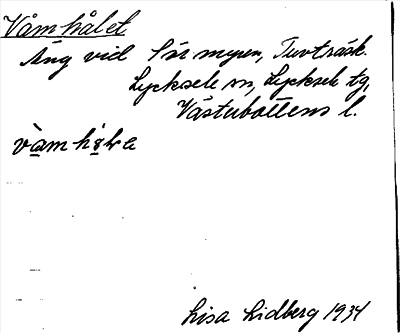 Våmhålet
Äng vid Sör myren, Tuvträsk.
Lycksele sn, Lycksele tg,
Västerbottens l.
Lisa Lidberg 1934